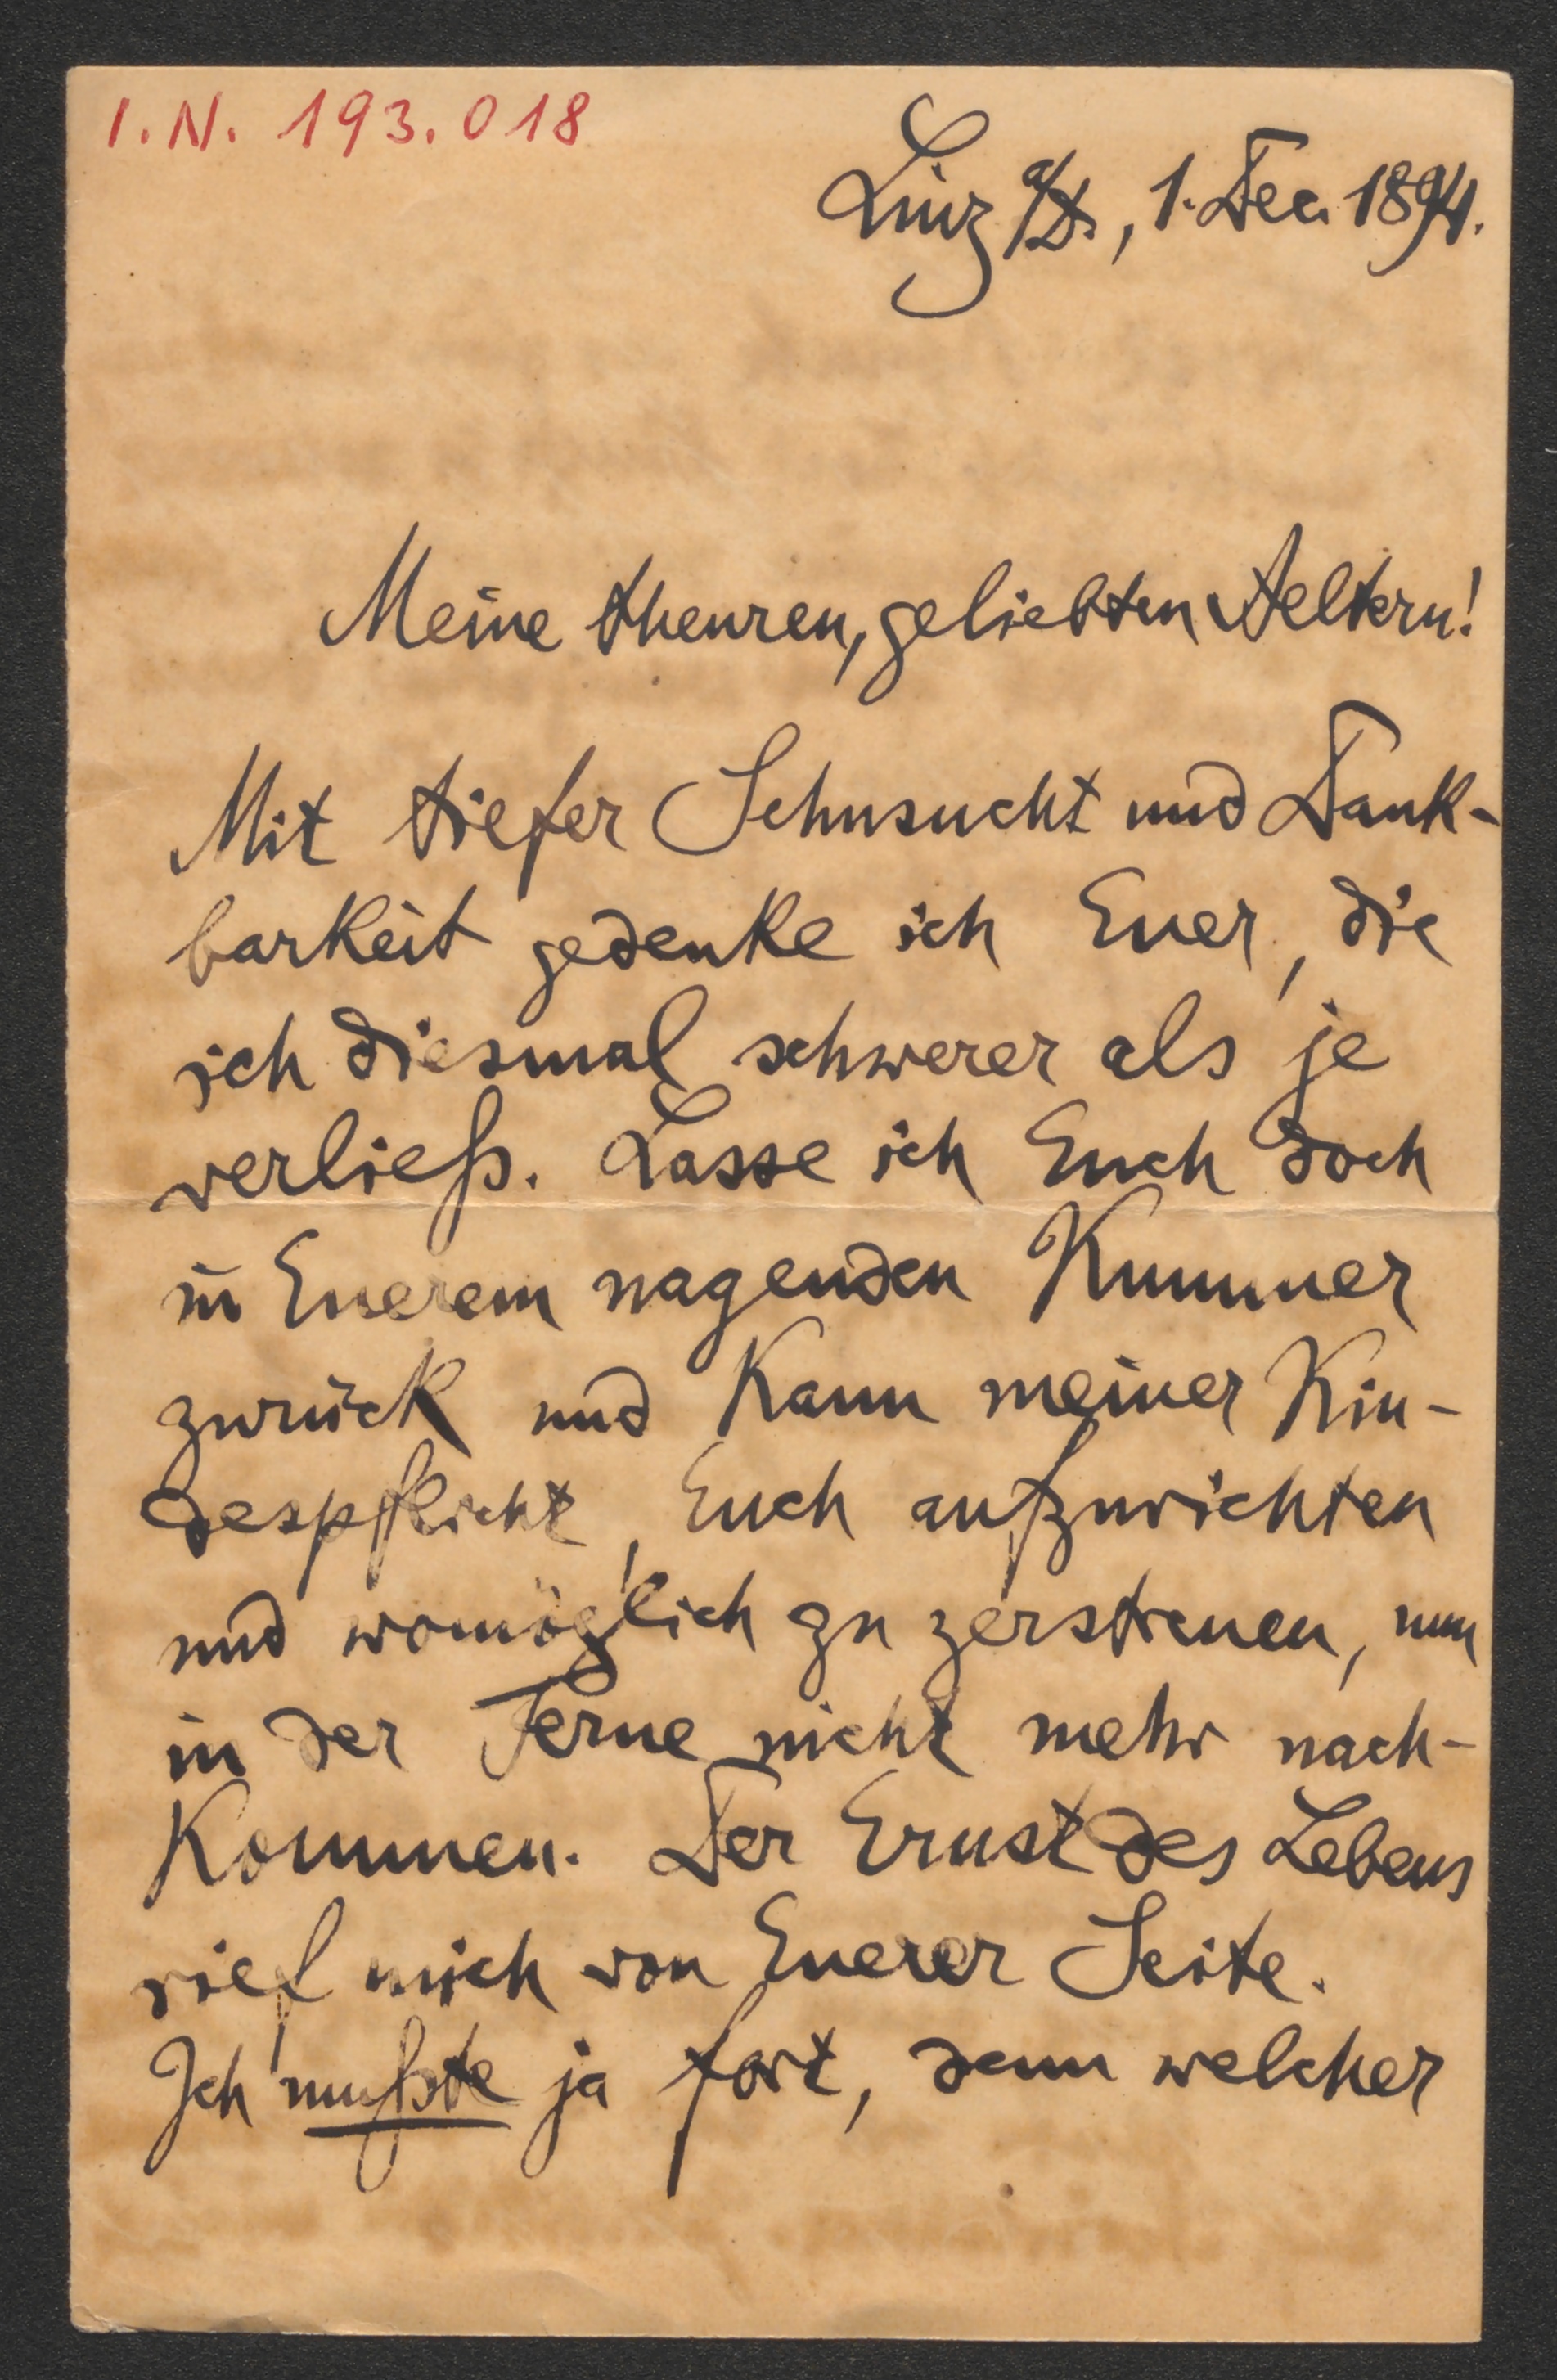 I. N. 193.018
Linz a/D., 1. Dec. 1894.
Meine theuren, geliebten Aeltern!
Mit tiefer Sehnsucht und Dank-
barkeit gedenke ich Euer, die
ich diesmal schwerer als je
verließ. Lasse ich Euch doch
in Euerem nagenden Kummer
zurück und kann meiner Kin-
despflicht, Euch aufzurichten
und womöglich zu zerstreuen, nun
in der Ferne nicht mehr nach-
kommen. Der Ernst des Lebens
rief mich von Euerer Seite.
Ich mußte ja fort, denn welcher